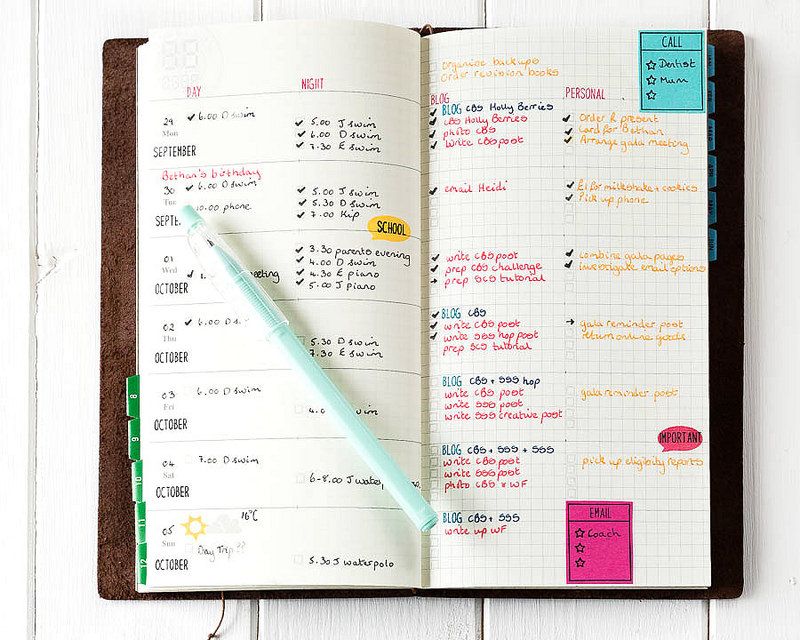 DAY
NIGHT
29
Mon
SEPTEMBER
6.00 D swim
5.00 J swim
6.00 D swim
7.30 E swim
Bethan's birthday
30
Tue
SEPTE
6.00 D swim
10.00 phone
5.00 J swim
5.30 D swim
7.00 Kip
SCHOOL
01
Wed
OCTOBER
meeting
3.30 parents evening
4.00 D swim
4.30 E piano
5.00 J piano
02
Thu
OCTOBER
6.00 D s
5.30 D swim
7.30 E swim
03
Fri
OCTOBER
6.00 D swim
04
Sat
OCTOBER
7.00 D swim
6-8.00 J waterp
05
Sun
OCTOBER
16°C
Day Trip ??
5.30 J waterpolo
8
9
10
11
12
organise backups
order revision books
BLOG
PERSONAL
BLOG CBS Holly Berries
CBS Holly Berries
photo CBS
write CBS post
Order & present
Card for Bethan
Arrange gala meeting
email Heidi
£1 for milkshake + cookies
Pick up phone
write CBS post
prep CBS challenge
prep SCS tutorial
combine gala pages
investigate email options
BLOG CBS
write CBS post
write SSS hop post
prep SCS tutorial
gala reminder post
return online goods
BLOG CBS + SSS hop
write CBS post
write SSS post
write SSS creative post
gala reminder post
IMPORTANT
BLOG CBS + SSS + SSS
write CBS post
write SSS post
photo CBS x WF
pick up eligibility reports
BLOG CBS + SSS
write up WF
CALL
Dentist
Mum
EMAIL
Coach